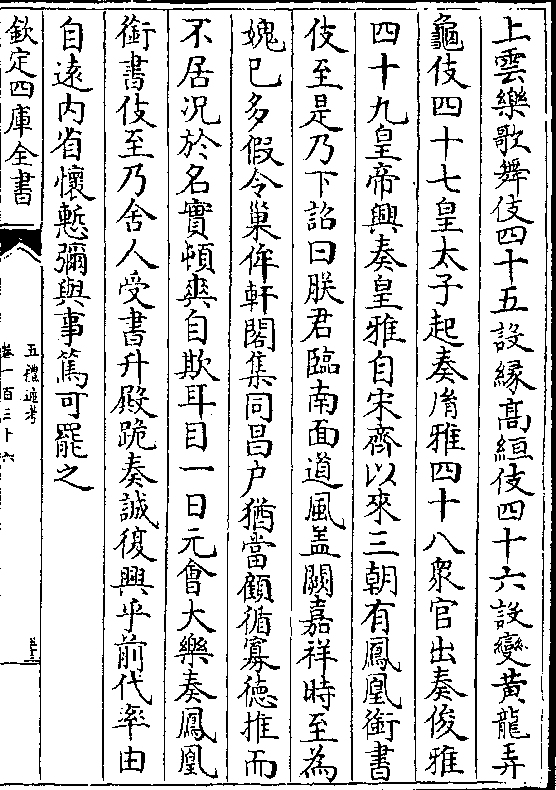 上雲樂歌舞伎四十五設縁髙絙伎四十六設變黄龍弄
龜伎四十七皇太子起奏胤雅四十八衆官出奏俊雅
四十九皇帝興奏皇雅自宋齊以來三朝有鳳凰銜書
伎至是乃下詔曰朕君臨南面道風盖闕嘉祥時至為
媿已多假令巢侔軒閣集同昌户猶當顧循寡徳推而
不居况於名實頓爽自欺耳目一日元會大樂奏鳳凰
銜書伎至乃舍人受書升殿跪奏誠復興乎前代率由
自遠内省懷慙彌與事篤可罷之
欽定四庫全書
五禮通考
卷一百三十六